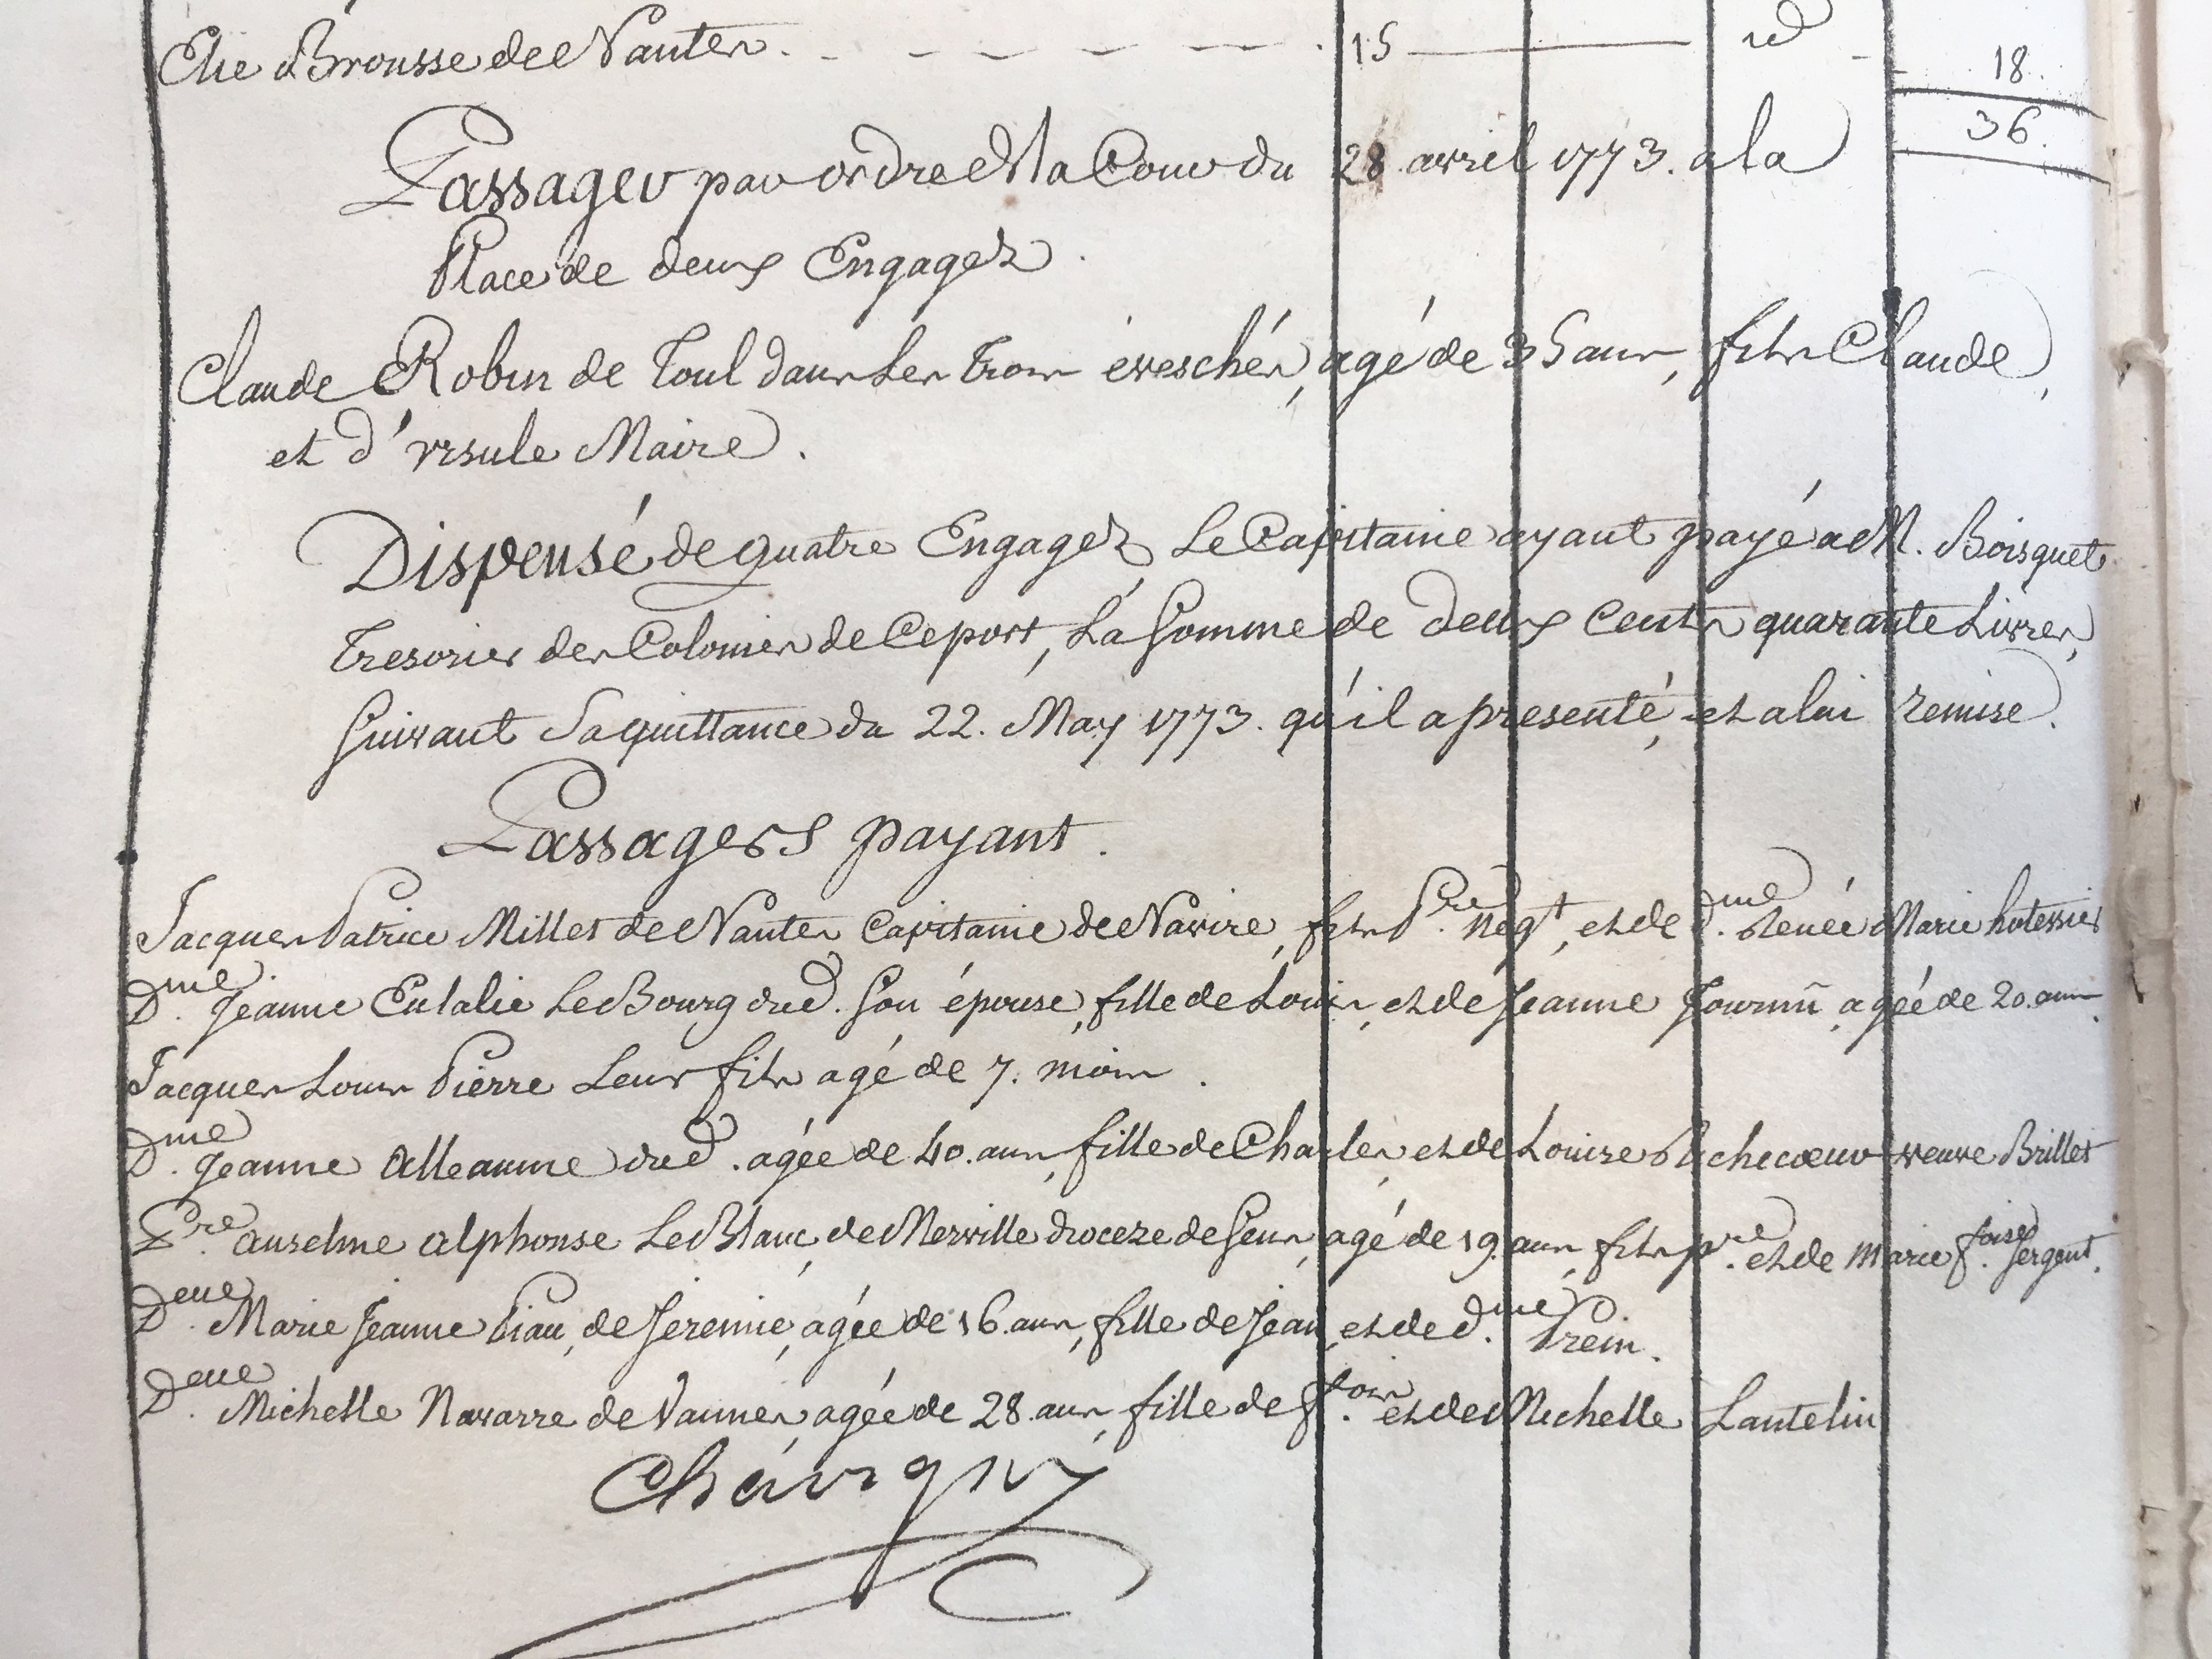 Elie Brousse de Nantes. 15 id 18.
36.
Passager par ordre de la Cour du 28 avril 1773. a la
Place de deux Engagez.
Claude Robin de Toul dans les trois évêschés, agé de 35 ans, fils Claude,
et d'Ursule Maire.
Dispensé de quatre Engagez Le Capitaine ayant payé a M. Boisquet
Tresorier des Colonies de Ce port, La Somme de deux Cents quarante Livres,
Suivant Sa quittance du 22. May 1773. qu'il a presenté, et a lui remise.
Passagers payant.
Jacques Patrice Millet de Nantes Capitaine de Navire, fils Pre. Negt, et de dme. Renée Marie
Dme. Jeanne Eulalie Le Bourg dud. Son épouse, fille de Louis, et de Jeanne agée de 20. ans.
Jacques Louis Pierre Leur fils agé de 7. mois.
Dme. Jeanne Alleaume dud. agée de 40. ans, fille de Charles, et de Louise Richecœur veuve Brillet
Pre. anselme alphonse Le Blanc, de Merville dioceze de Sens, agé de 19. ans, fils pre. et de Marie foise. Sergent.
Delle. Marie Jeanne Piau, de Jeremie, agée de 16. ans, fille de Jean, et de d.me Prein.
Delle. Michelle Navarre de Vannes, agée de 28. ans, fille de fois. et de Michelle Lantelin
Chévigny